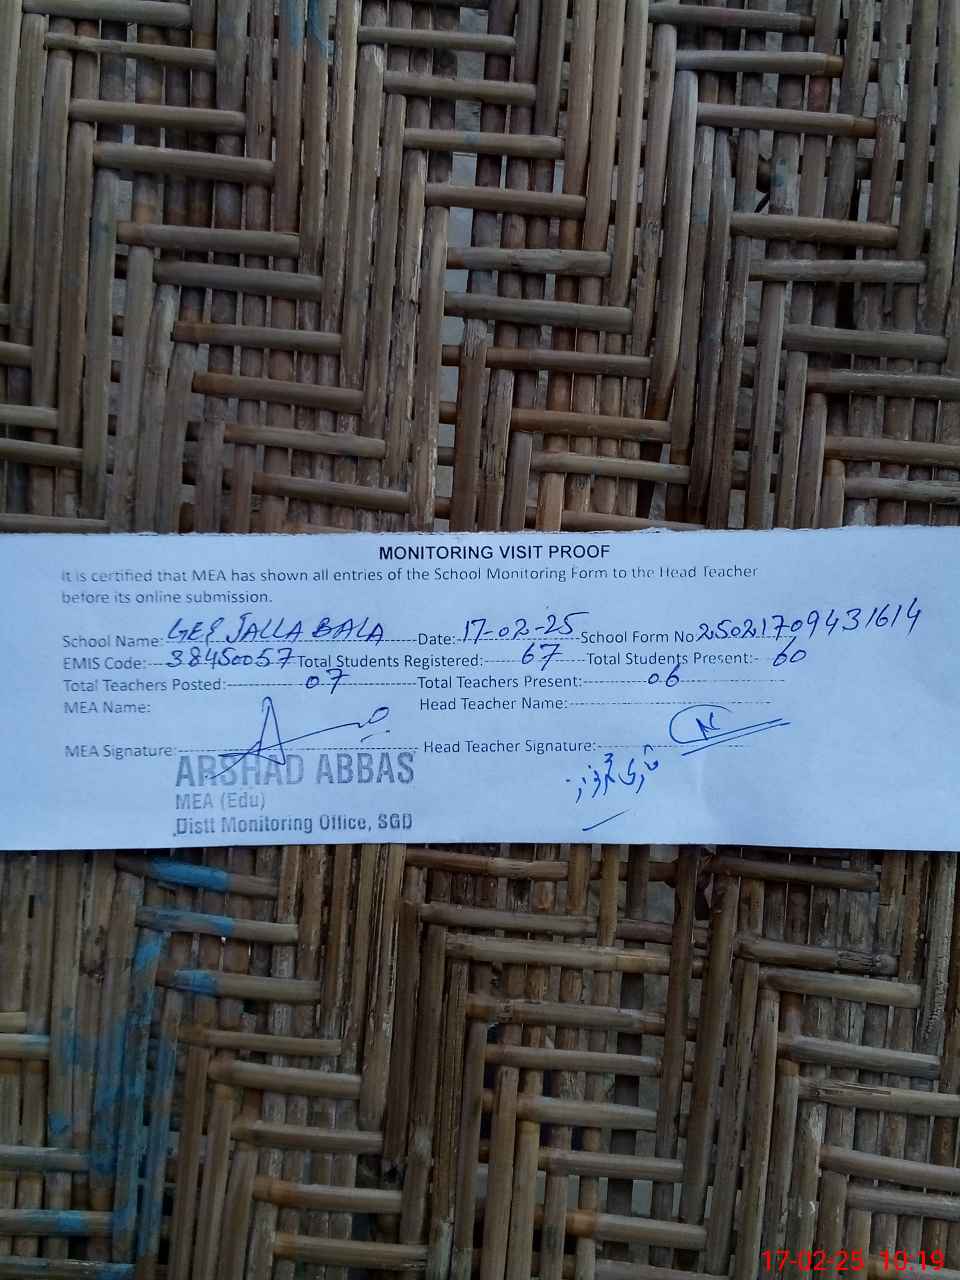 MONITORING VISIT PROOF
It is certified that MEA has shown all entries of the School Monitoring Form to the Head Teacher
before its online submission.
School Name: GES JALLA BALA Date: 17-02-25 School Form No 25021709431614
EMIS Code: 38450057 Total Students Registered: 67 Total Students Present:- 60
Total Teachers Posted: 07 Total Teachers Present: 06
MEA Name: Head Teacher Name:
MEA Signature: Head Teacher Signature:
ARSHAD ABBAS
MEA (Edu)
Distt Monitoring Office, SGD
17-02-25 10:19